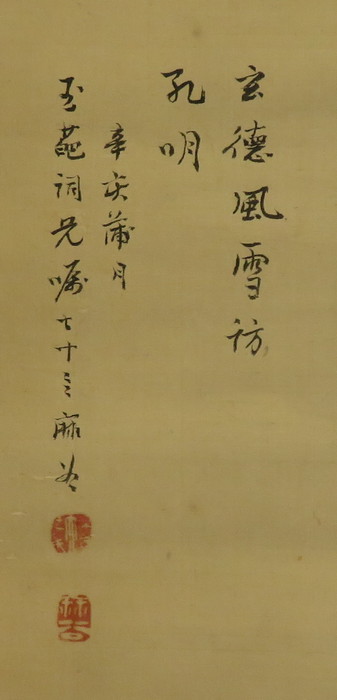 玄德風雪訪
孔明
辛亥蒲月
玉葩詞兄嘱 七十三